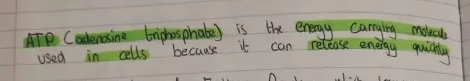 ATP (adenosine triphosphate) is the energy carrying molecule
used in cells because it can release energy quickly